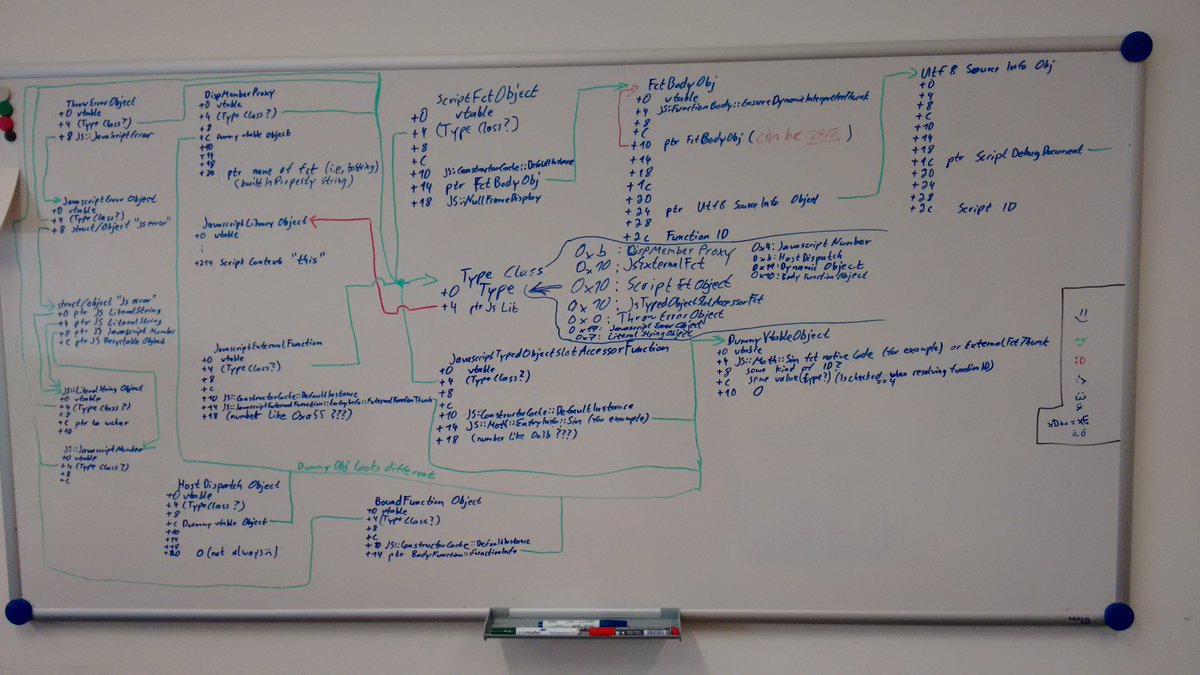 ThrowErrorObject
+0 vtable
+4 (Type Class?)
+8 JS::JavascriptError
DispMemberProxy
+0 vtable
+4 (Type Class?)
+8
+C Dummy vtable Object
+10
+14
+18
+20 ptr name of fct (i.e., toString)
(built In Property string)
ScriptFctObject
+0 vtable
+4 (Type Class?)
+8
+C
+10 JS::ConstructorCache::DefaultInstance
+14 ptr FctBodyObj
+18 JS::NullFrameDisplay
FctBodyObj
+0 vtable
+4 JS::FunctionBody::EnsureDynamicInterpreterThunk
+8
+C
+10 ptr FctBodyObj (can be zero)
+14
+18
+1c
+20
+24 ptr Utf8 Source Info Object
+28
+2c Function ID
Utf8 Source Info Obj
+0
+4
+8
+C
+10
+14
+18
+1c ptr Script Debug Document
+20
+24
+28
+2c Script ID
Javascript Error Object
+0 vtable
+4 (Type Class?)
+8 struct/Object "Js error"
Javascript Library Object
+0 vtable
:
+214 Script Context "this"
Type Class
+0 Type
+4 ptr Js Lib
0xb : DispMemberProxy
0x10 : JsExternalFct
0x10 : Script fct Object
0x10 : JsTypedObjectSlotAccessorFct
0x0 : ThrowErrorObject
0x19: Javascript Error Object
0x7: Literal String Object
0x4: Javascript Number
0xb: Host Dispatch
0x11: Dynamic Object
0x10: Body Function Object
struct/object "Js error"
+0 ptr JS LiteralString
+4 ptr JS LiteralString
+8 ptr JS Javascript Number
+C ptr JS Recyclable Object
JavascriptExternalFunction
+0 vtable
+4 (Type Class?)
+8
+C
+10 JS::ConstructorCache::DefaultInstance
+14 JS::JavascriptExternalFunction::EntryInfo::ExternalFunctionThunk
+18 (number like 0xa55 ???)
JavascriptTypedObjectSlotAccessorFunction
+0 vtable
+4 (Type Class?)
+8
+C
+10 JS::ConstructorCache::DefaultInstance
+14 JS::Math::EntryInfo::Sin (for example)
+18 (number like 0x1b ???)
Dummy VtableObject
+0 vtable
+4 JS::Math::Sin fct native Code (for example) or ExternalFctThunk
+8 some kind of ID?
+C some value (type?) (is checked == 4 when resolving function ID)
+10 0
JS::Literal String Object
+0 vtable
+4 (Type Class?)
+8
+C ptr to wchar
+10
JS::JavascriptNumber
+0 vtable
+4 (Type Class?)
+8
+C
Dummy Obj looks different
Host Dispatch Object
+0 vtable
+4 (Type Class?)
+8
+C Dummy vtable Object
+10
+14
+18
+20 0 (not always
BoundFunction Object
+0 vtable
+4 (Type Class?)
+8
+C
+10 JS::ConstructorCache::DefaultInstance
+14 ptr BodyFunction::FunctionInfo
MAUL